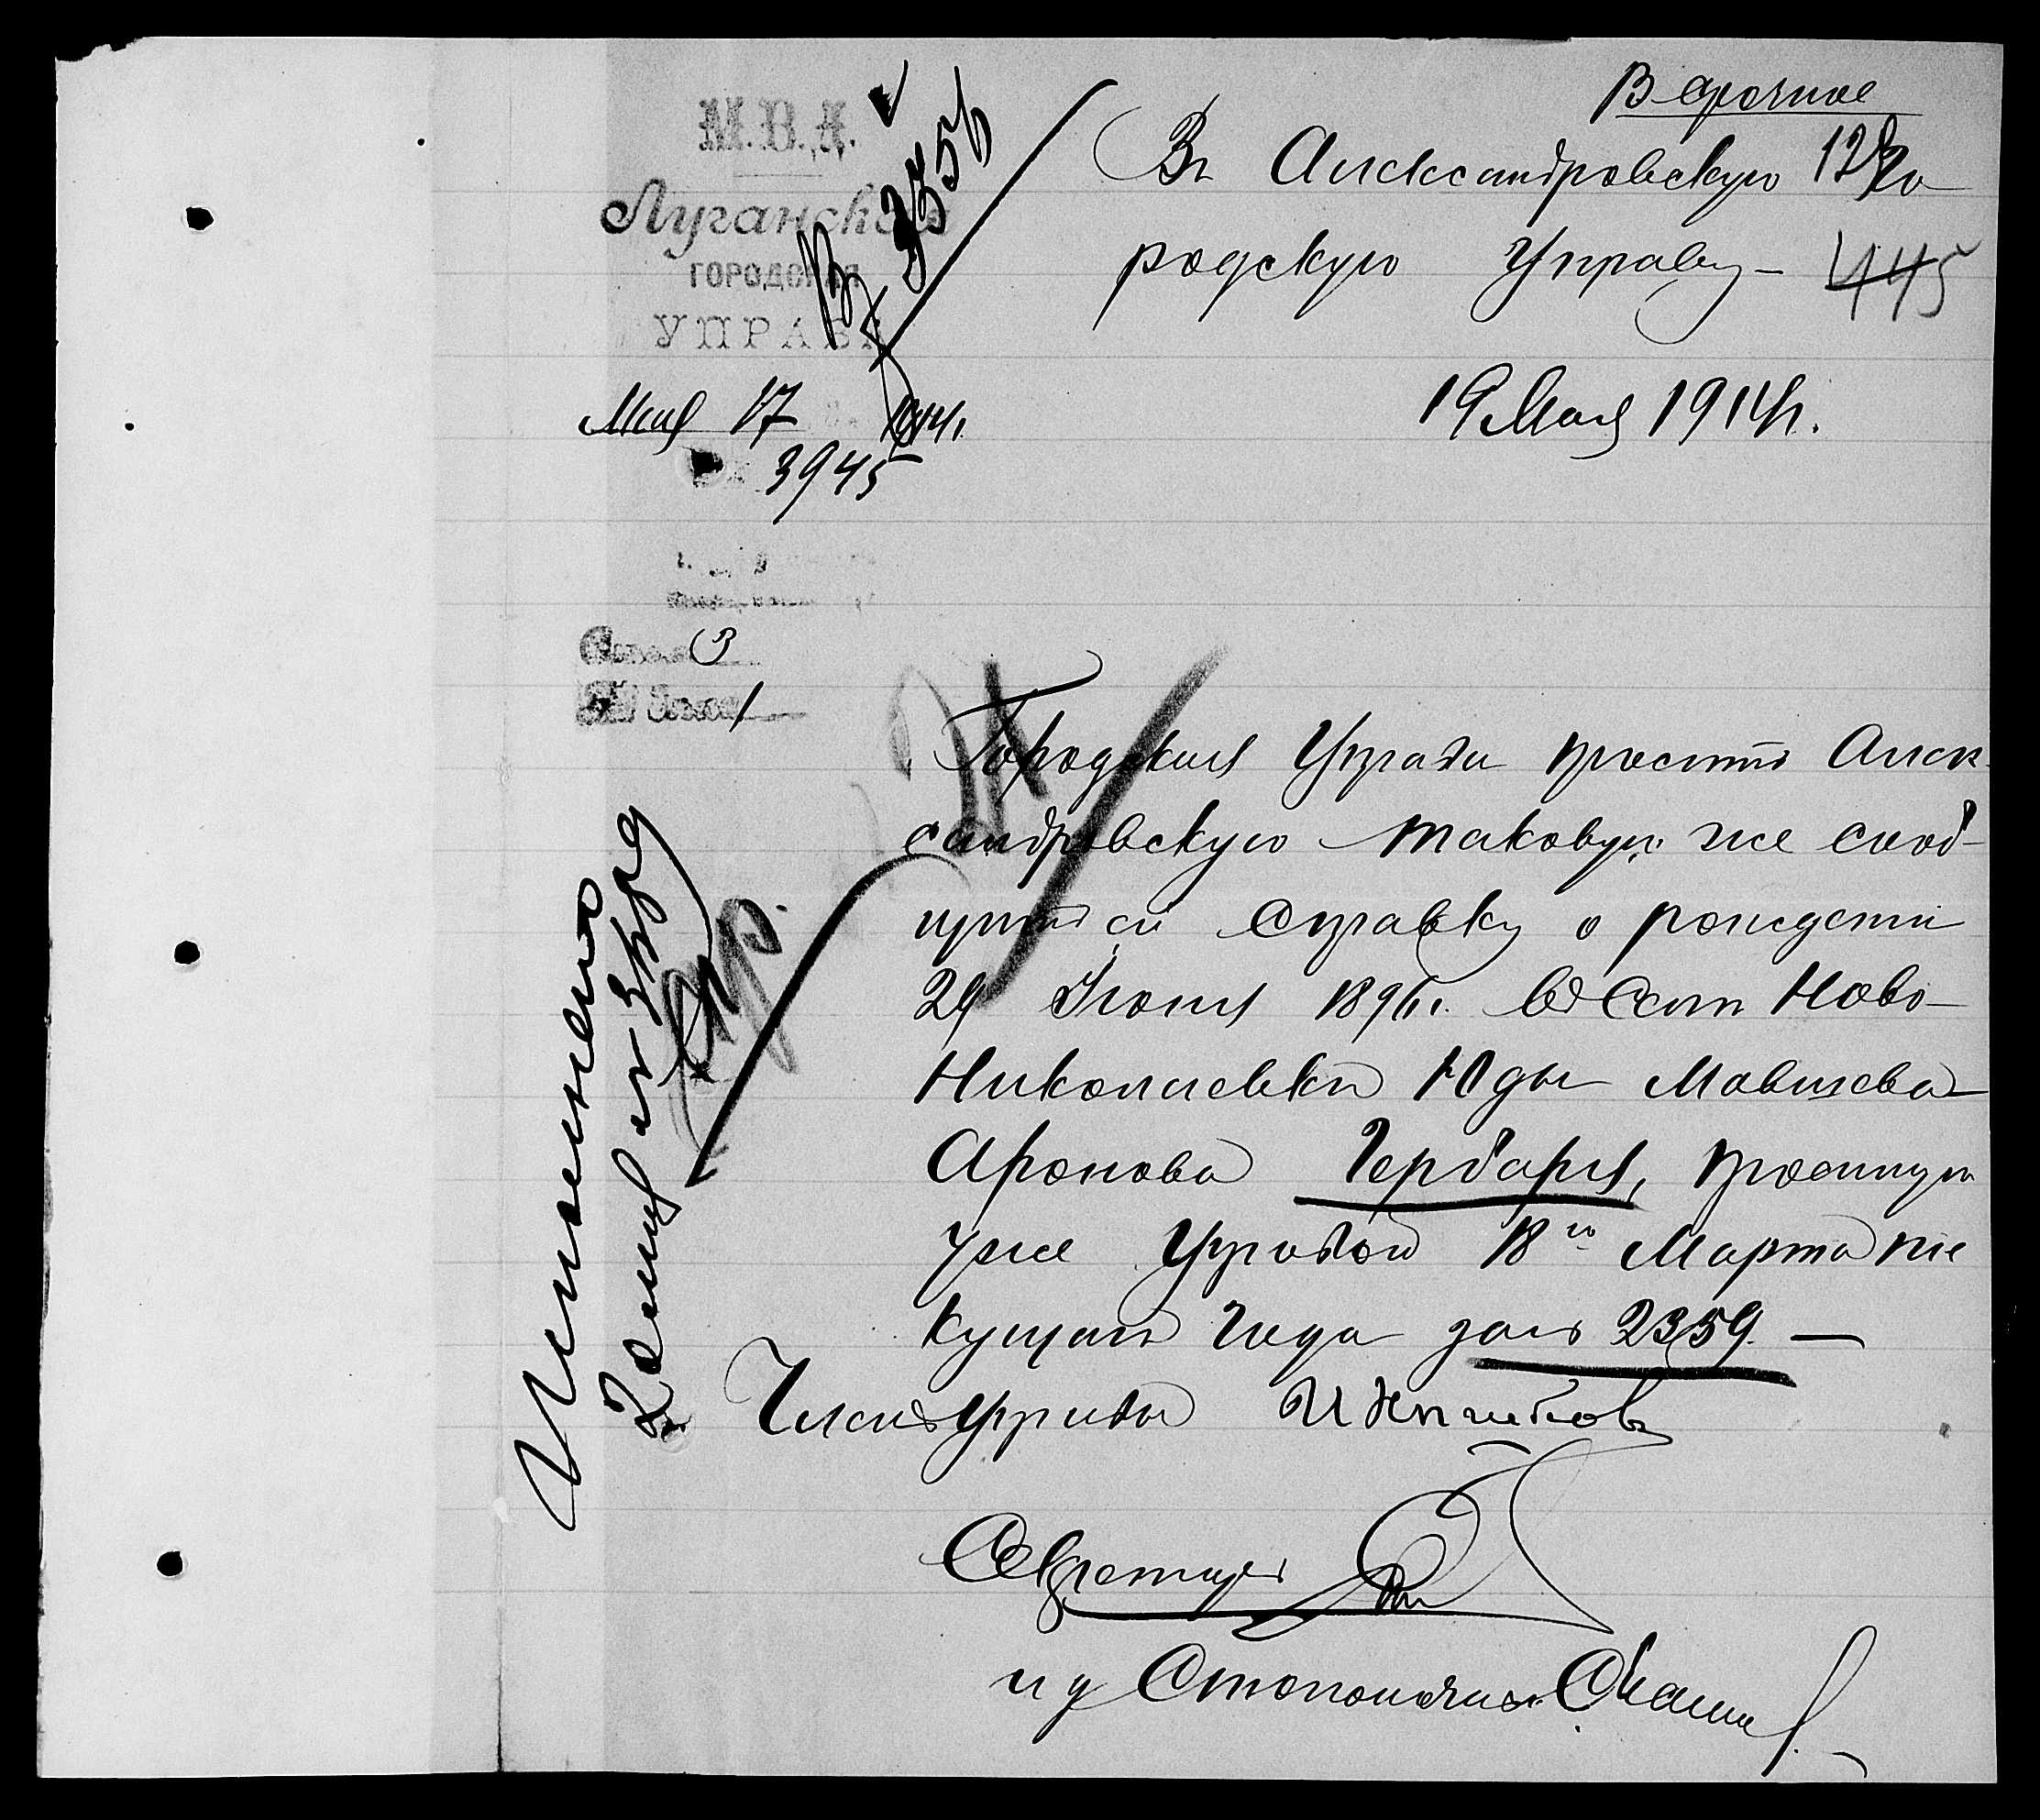 В срочное
М.В.Д.
Луганская
ГОРОДСКАЯ
УПРАВА
Мая 17 1914 г.
№ 3945
В 3356
Въ Александровскую Го
128
родскую Управу
445
19 Мая 1914 г.
3
1
Городская Управа проситъ Алек
сандровскую таковую же снаб-
дить ей справку о рожденіи
29 Іюня 1896 г. въ селѣ Ново-
Николаевкѣ Юды Мовшева-
Аронова Гербаря, просимую
уже Управой 18го Марта те
кущаго года за № 2359. —
Членъ Управы
Секретарь
и д Столоначальн.
Исполнено